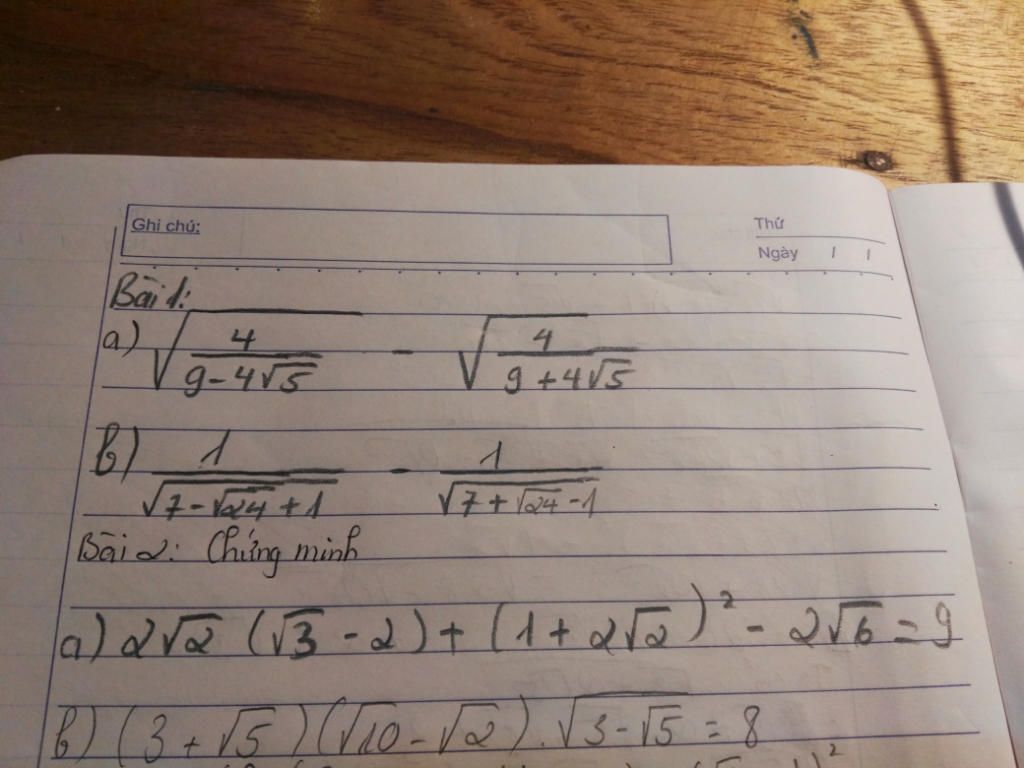 Ghi chú:
Thứ
Ngày / /
Bài 1:
a) √(4/(9-4√5)) - √(4/(9+4√5))
b) 1/√(7-√24+1) - 1/√(7+√24-1)
Bài 2: Chứng minh
a) 2√2 (√3-2) + (1+2√2)² - 2√6 = 9
b) (3+√5)(√10-√2).√(3-√5) = 8